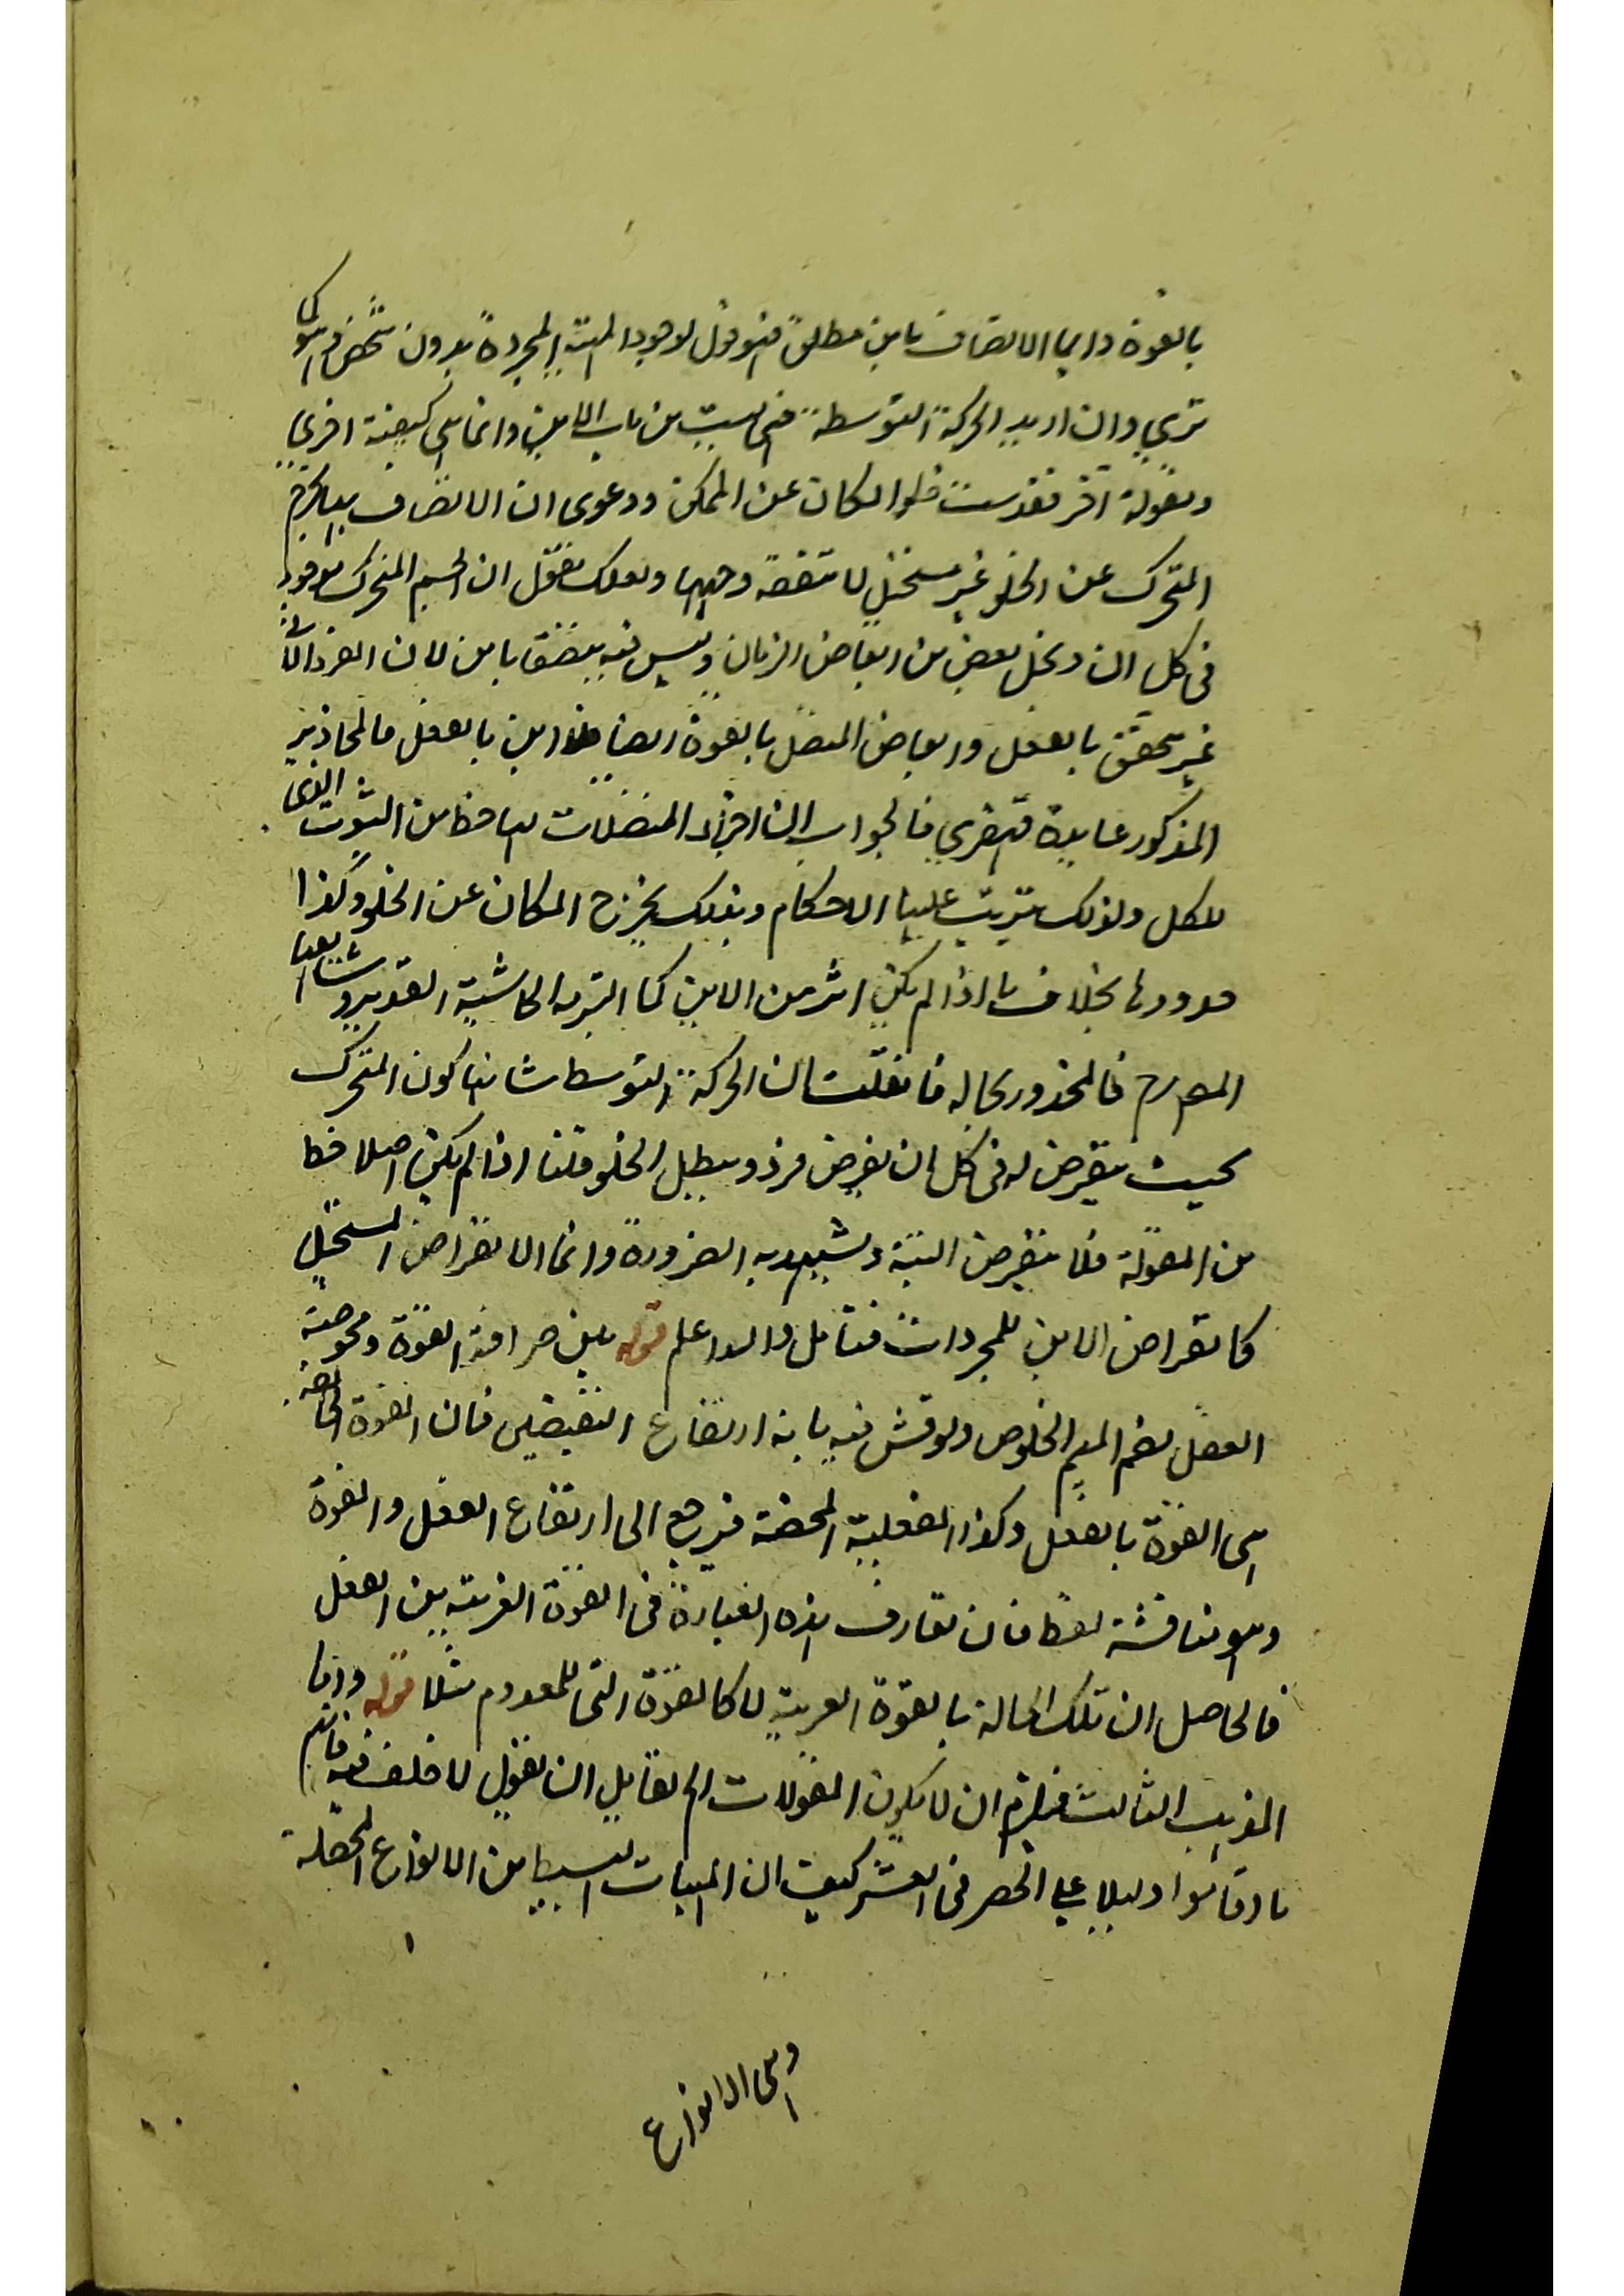 بالقوة واما الاتصاف باين مطلق فهو قول لوجود الماهية المجردة بدون تشخص فهو كما
تري وان اريد الحركة التوسطية فهي ليست من باب الاين وانما هي كيفية اخري
ومقولة آخر فقد ست خلو المكان عن الممكن ودعوى ان الاتصاف بها يخرج
المتحرك عن الخلو غير مستحيل لا متفقة وجهها ولعلك تقول ان الجسم المتحرك موجود
في كل ان ونحل بعض من ابعاض الزمان وليس فيه يتصف باين لان الفرد الآني
غير متحقق بالفعل وابعاض المتصل بالقوة ايضا فلا اين بالفعل فالمحاذير
المذكور عايدة قهقري فالجواب ان اجزاء المتصلات لها حظ من الثبوت الذي
للكل ولذلك يترتب عليها الاحكام وبذلك يخرج المكان عن الخلو وكذا
حدودها بخلاف ما اذا لم يكن اثر من الاين كما التزمه الحاشية القديمة وتابعها
المصرح فالمحذور بحاله فان قلت ان الحركة التوسط شانها كون المتحرك
بحيث يفرض له في كل ان يفرض فرد ويبطل الخلو قلنا اذا لم يكن اصلا حظ
من المقولة فلا يفرض البتة وتشهد به الضرورة وانما الانفراض المستحيل
كانفراض الاين للمجردات فتامل والله اعلم قوله بين صرافة القوة ومحوضة
الفعل بضم الميم الخلوص ونوقش فيه بانه ارتفاع النقيضين فان القوة الخالصة
هي القوة بالفعل وكذا الفعلية المحضة فيرجع الى ارتفاع الفعل والقوة
وهو مناقشة لفظا فان تعارف هذه العبارة في القوة القريبة بين الفعل
فالحاصل ان تلك الحالة بالقوة القريبة لا كالقوة التي للمعدوم مثلا قوله واما
المذهب الثالث فيلزم ان لا يكون المقولات الخ لقايل ان يقول لا خلف فيه فانهم
ما اقاموا دليلا علي الحصر في العشر كيف ان الماهيات البسيطة من الانواع المحصلة
وهي الانواع